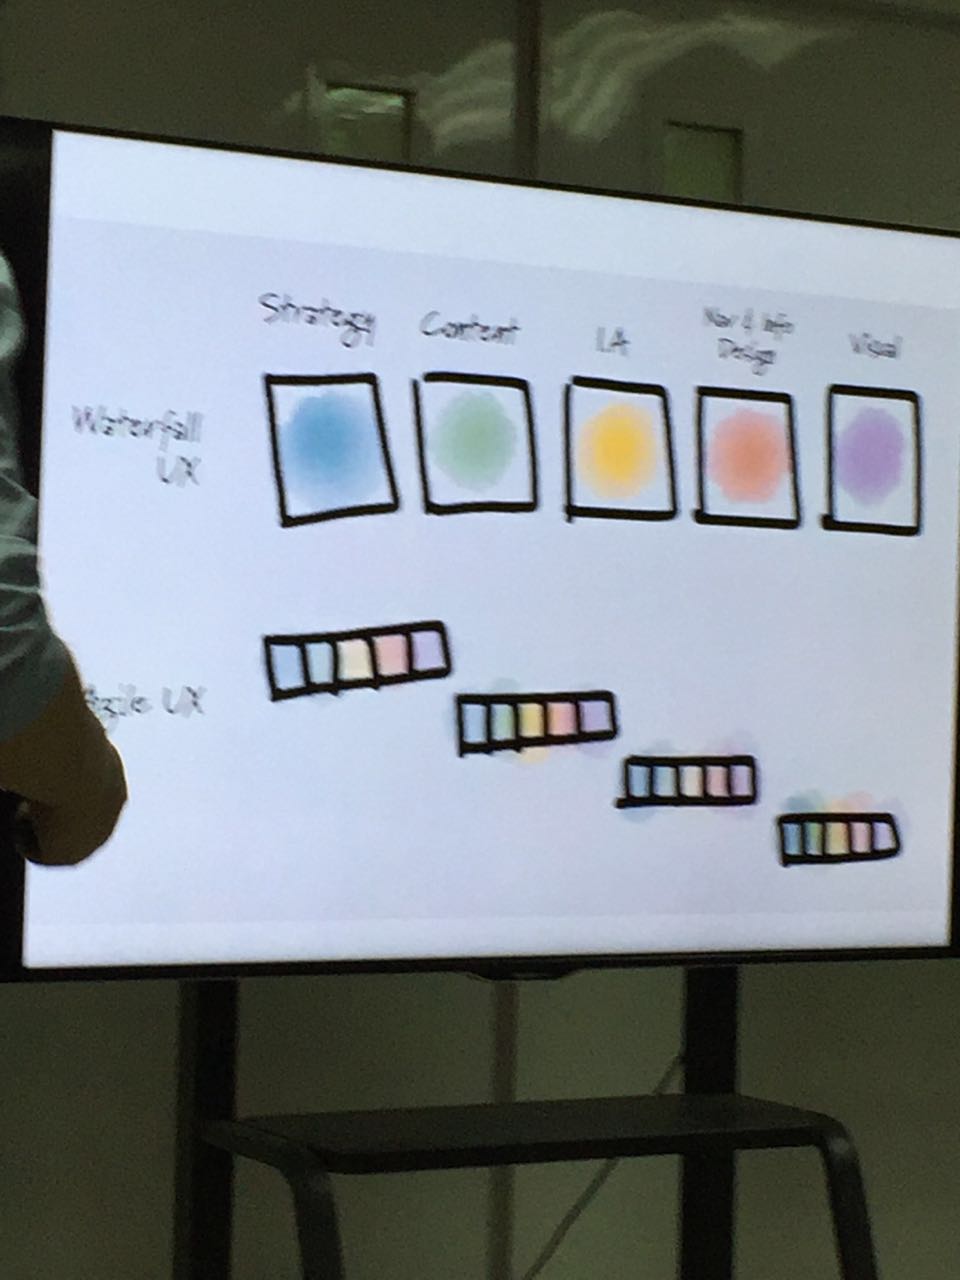 Strategy
Content
IA
Nav & Info
Design
Visual
Waterfall
UX
Agile UX